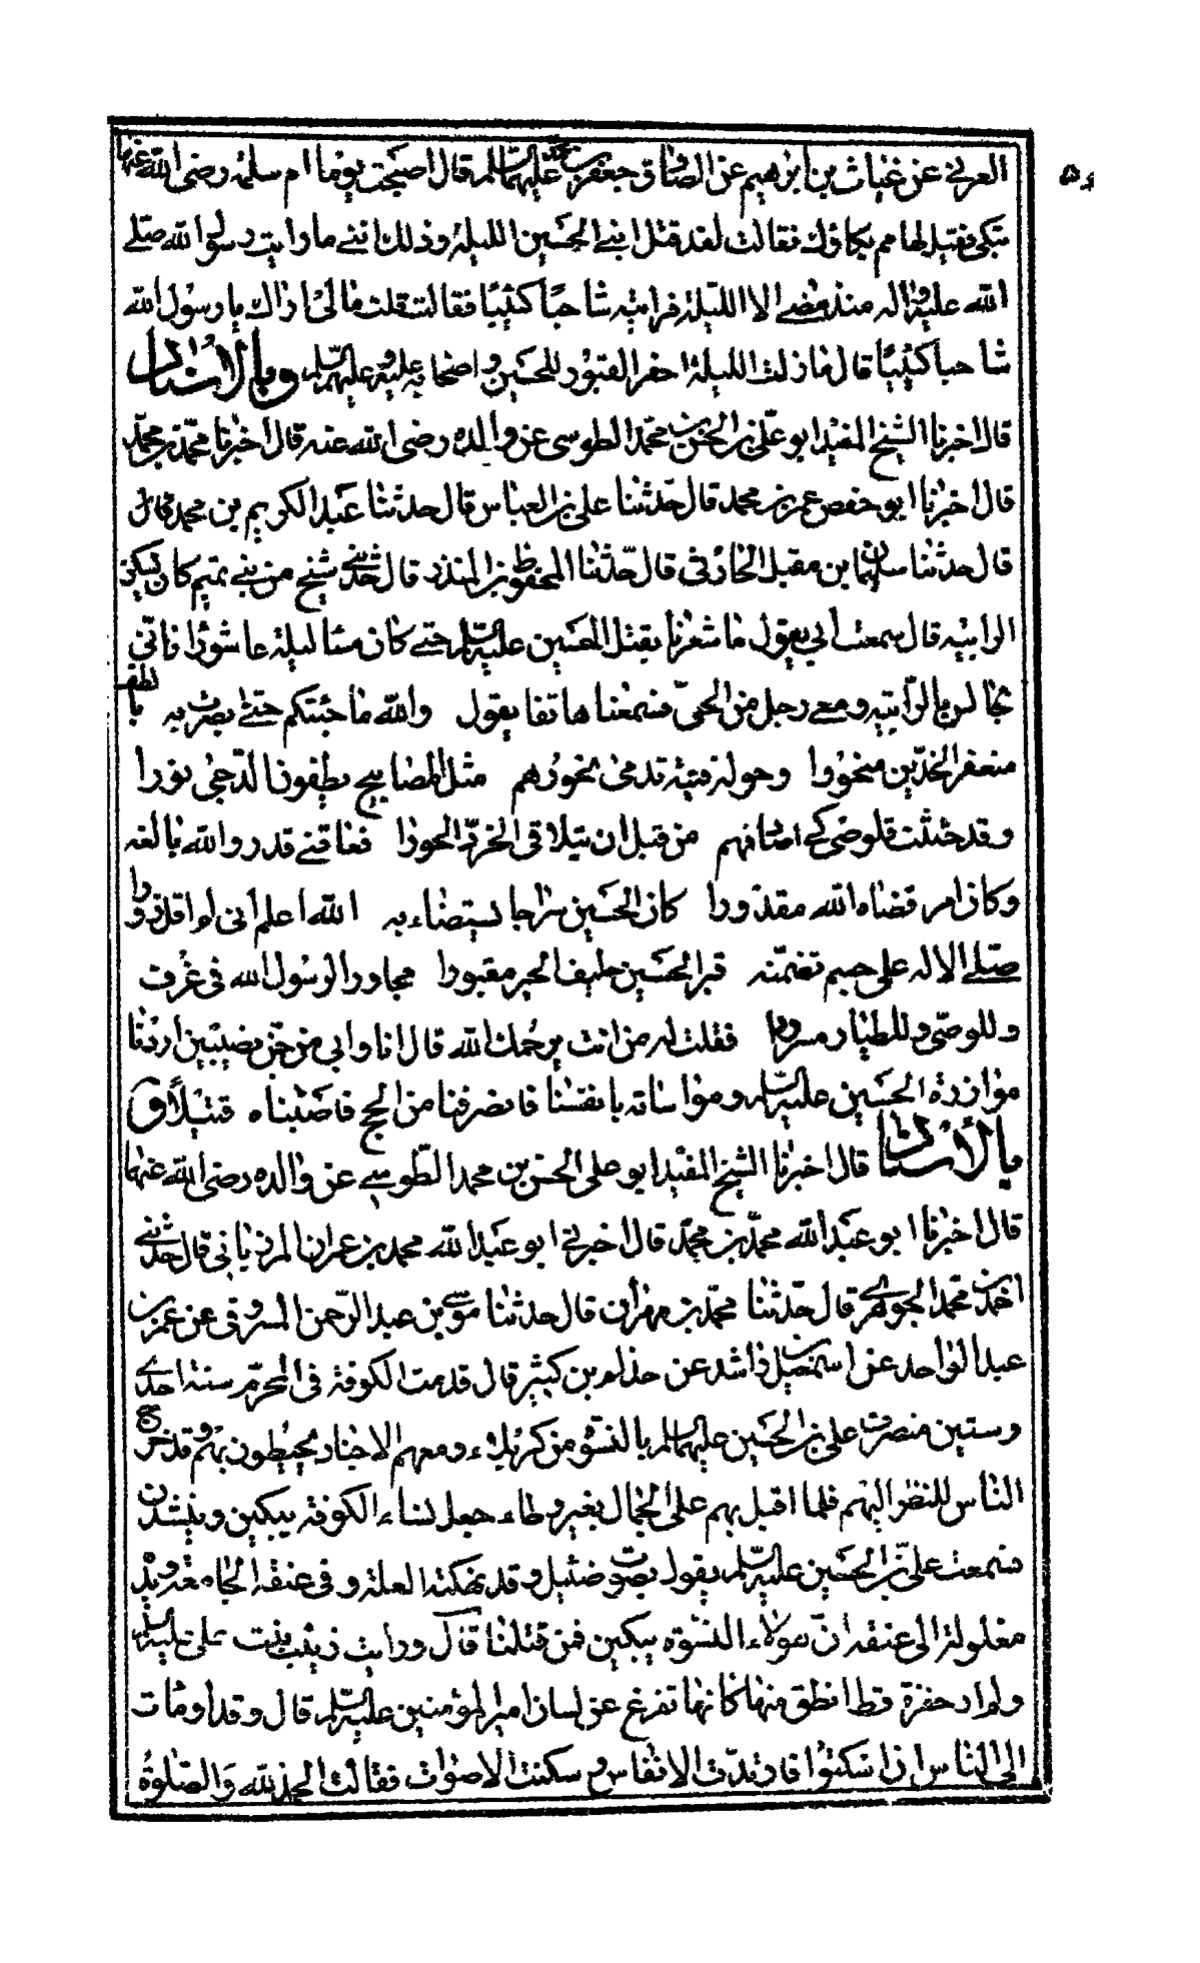 العرني عن غياث بن ابرهيم عن الصادق جعفر بن محمد عليهما السلم قال اصبحت يوما ام سلمة رضى الله عنها
تبكى فقيل لها مم بكاؤك فقالت لقد قتل ابنى الحسين الليلة وذلك اننى ما رايت رسول الله صلى
الله عليه واله منذ مضى الا الليلة فرايته شاحبا كئيبا فقالت قلت مالى اراك يا رسول الله
شاحبا كئيبا قال ما زلت الليلة احفر القبور للحسين واصحابه عليه وعليهم السلم وبالاسناد
قال اخبرنا الشيخ المفيد ابو على بن الحسن بن محمد الطوسى عن والده رضى الله عنه قال اخبرنا محمد بن محمد
قال اخبرنا ابو حفص عمر بن محمد قال حدثنا على بن العباس قال حدثنا عبد الكريم بن محمد قال
قال حدثنا سليمان بن مقبل الحارثى قال حدثنا المحفوظ بن المنذر قال حدثنى شيخ من بنى تميم كان يسكن
الرابية قال سمعت ابى يقول ما شعرنا بقتل الحسين عليه السلم حتى كان مسا ليلة عاشورا فانى
جالس بالرابية ومعى رجل من الحى فسمعنا هاتفا يقول والله ما جئتكم حتى بصرت به بالطف
منعفر الخدين منحورا وحوله فتية تدمى نحورهم مثل المصابيح يطفون الدجى نورا
وقد حثثت قلوصى كى اصادفهم من قبل ان تتلاقى الخرد الحورا فعاقنى قدر والله بالغه
وكان امر قضاه الله مقدورا كان الحسين سراجا يستضاء به الله اعلم انى لم اقل زورا
صلى الاله على جسم تضمنه قبر الحسين حليف الخير مقبورا مجاورا لرسول الله فى غرف
وللوصى وللطيار مسرورا فقلت له من انت يرحمك الله قال انا وابى من جن نصيبين اردنا
موازرة الحسين عليه السلم ومواساته بانفسنا فانصرفنا من الحج فاصبناه قتيلا و
بالاسناد قال اخبرنا الشيخ المفيد ابو على الحسن بن محمد الطوسى عن والده رضى الله عنهما
قال اخبرنا ابو عبد الله محمد بن محمد قال اخبرنى ابو عبد الله محمد بن عمران المرزبانى قال حدثنى
احمد بن محمد الجوهرى قال حدثنا محمد بن مهران قال حدثنا موسى بن عبد الرحمن المسروقى عن عمر بن
عبد الواحد عن اسمعيل بن راشد عن حذلم بن كثير قال قدمت الكوفة فى المحرم سنة احدى
وستين منصرف على بن الحسين عليهما السلم بالنسوة من كربلاء ومعهم الاجناد محيطون بهم وقد خرج
الناس للنظر اليهم فلما اقبل بهم على الجمال بغير وطاء جعل نساء الكوفة يبكين وينشدن
فسمعت على بن الحسين عليه السلم يقول بصوت ضئيل وقد نهكته العلة وفى عنقه الجامعة ويده
مغلولة الى عنقه ان هولاء النسوة يبكين فمن قتلنا قال ورايت زينب بنت على عليه السلم
ولم ار خفرة قط انطق منها كانها تفرغ عن لسان امير المؤمنين عليه السلم قال وقد اومات
الى الناس ان اسكتوا فارتدت الانفاس و سكنت الاصوات فقالت الحمد لله والصلوة